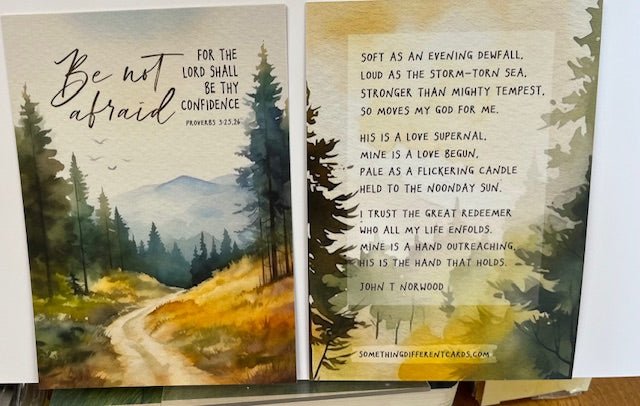 Be not
afraid
FOR THE
LORD SHALL
BE THY
CONFIDENCE
PROVERBS 3:25,26
SOFT AS AN EVENING DEWFALL,
LOUD AS THE STORM-TORN SEA,
STRONGER THAN MIGHTY TEMPEST,
SO MOVES MY GOD FOR ME.
HIS IS A LOVE SUPERNAL,
MINE IS A LOVE BEGUN,
PALE AS A FLICKERING CANDLE
HELD TO THE NOONDAY SUN.
I TRUST THE GREAT REDEEMER
WHO ALL MY LIFE ENFOLDS.
MINE IS A HAND OUTREACHING,
HIS IS THE HAND THAT HOLDS.
JOHN T NORWOOD
SOMETHINGDIFFERENTCARDS.COM